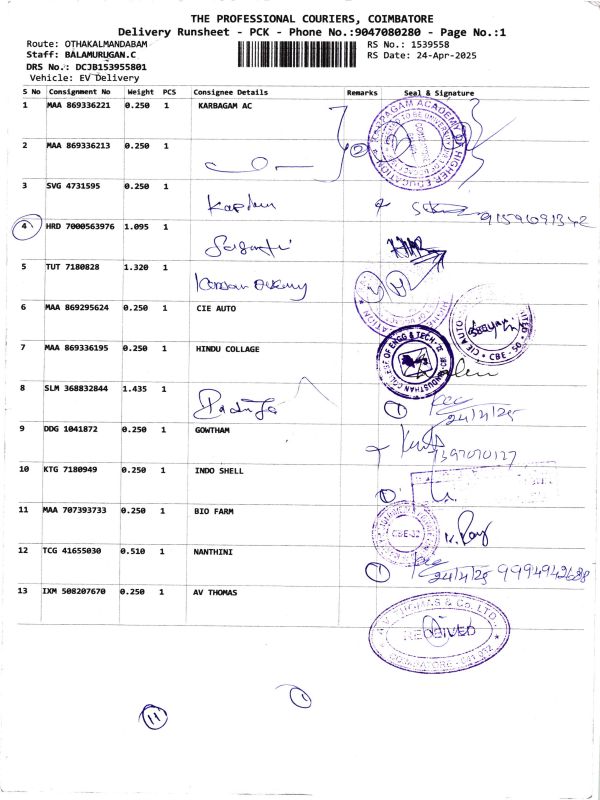 THE PROFESSIONAL COURIERS, COIMBATORE
Delivery Runsheet - PCK - Phone No.:9047080280 - Page No.:1
Route: OTHAKALMANDABAM
RS No.: 1539558
Staff: BALAMURUGAN.C
RS Date: 24-Apr-2025
DRS No.: DCJB153955801
Vehicle: EV Delivery
S No Consignment No Weight PCS Consignee Details Remarks Seal & Signature
1 MAA 869336221 0.250 1 KARBAGAM AC
2 MAA 869336213 0.250 1
3 SVG 4731595 0.250 1
9159691342
4 HRD 7000563976 1.095 1
5 TUT 7180828 1.320 1
6 MAA 869295624 0.250 1 CIE AUTO
CBE - 50
7 MAA 869336195 0.250 1 HINDU COLLAGE
8 SLM 368832844 1.435 1
24/4/25
9 DDG 1041872 0.250 1 GOWTHAM
10 KTG 7180949 0.250 1 INDO SHELL
11 MAA 707393733 0.250 1 BIO FARM
CBE-32
12 TCG 41655030 0.510 1 NANTHINI
24/4/25 9994942688
13 IXM 508207670 0.250 1 AV THOMAS
RECEIVED
11
1